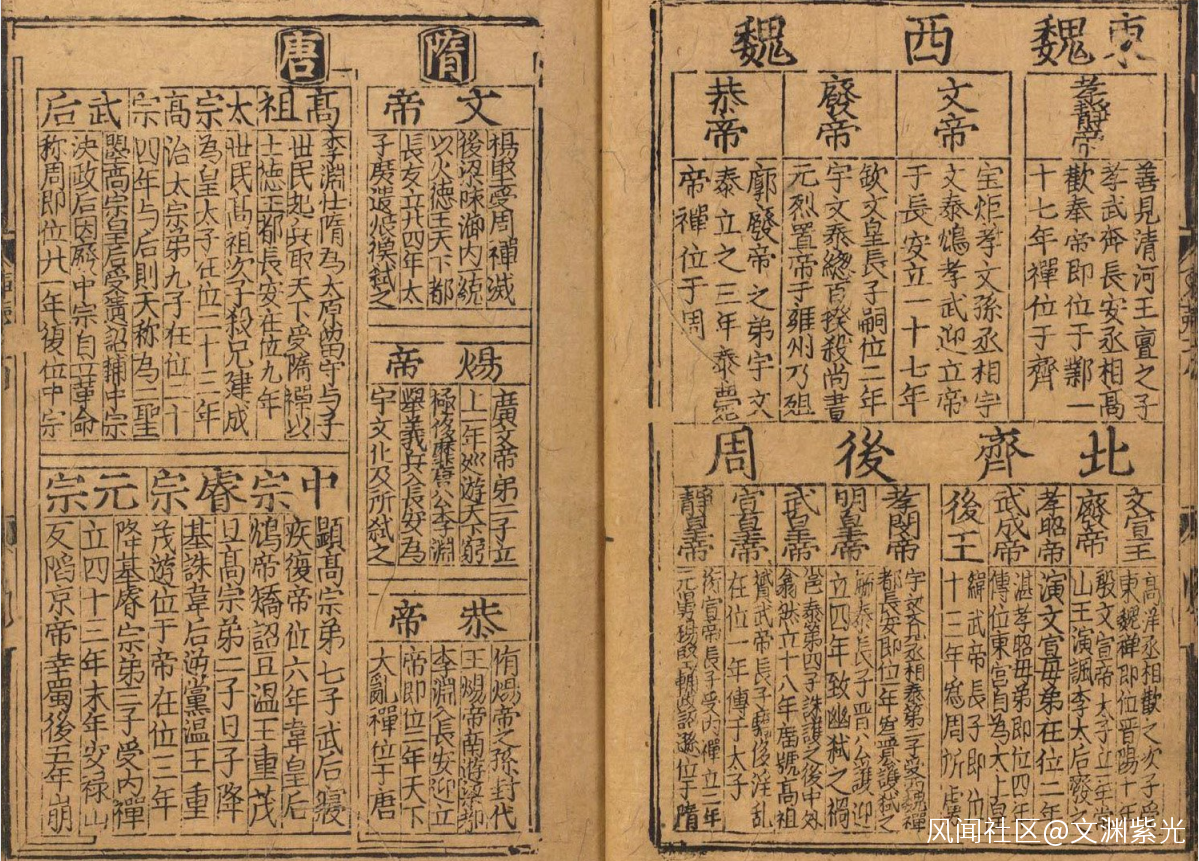 東魏
孝靜帝
善見清河王亶之子
孝武奔長安丞相高
歡奉帝即位于鄴一
十七年禪位于齊
西魏
文帝
宝炬孝文孫丞相宇
文泰鴆孝武迎立帝
于長安立一十七年
廢帝
欽文皇長子嗣位二年
宇文泰緫百揆殺尚書
元烈置帝于雍州乃殂
恭帝
廓廢帝之弟宇文
泰立之三年泰薨
帝禪位于周
北齊
文宣王
廢帝
孝昭帝
武成帝
後王
高洋丞相歡之次子受
東魏禪即位晋陽十年
殷文宣帝太子立一年
山王演諷李太后廢
演文宣毋弟在位二年
湛孝昭毋弟即位四年
傳位東宮自為太上皇
緯武帝長子即位
十二年為周所虜
後周
孝閔帝
明皇帝
武皇帝
宣皇帝
靜皇帝
宇文丞相泰第三子受西魏禪
都長安即位一年晋護弑之
毓泰長子晋公護迎
立四年致幽弑之禍
邕泰第四子誅護之後中外
翕然立十八年廟號高祖
贇武帝長子驕侈淫乱
在位一年傳于太子
衍宣帝長子受内禪立二年
楊堅輔政遜位于隋
隋
文帝
楊堅受周禪滅
後梁陳海内一統
以火德王天下都
長安立廿四年太
子廣遣張衡弑之
煬帝
廣文帝第二子立
十二年巡遊天下窮
極侈靡唐公李淵
舉義兵入長安為
宇文化及所弑之
恭帝
侑煬帝之孫封代
王煬帝南遊梁都
李淵入長安迎立
帝即位二年天下
大亂禪位于唐
唐
高祖太宗高宗武后
李淵仕隋為太原留守与子
世民起兵取天下受隋禪以
土德王都長安在位九年
世民高祖次子殺兄建成
為皇太子在位二十三年
治太宗第九子在位三十
四年与后則天称為二聖
曌高宗皇后受遺詔輔中宗
決政后因廢中宗自立革命
称周即位廿一年復位中宗
中宗睿宗元宗
顯高宗第七子武后寢
疾復帝位六年韋皇后
鴆帝矯詔立温王重茂
旦高宗第二子日子降
基誅韋后逆黨温王重
茂遜位于帝在位三年
降基睿宗第三子受内禪
立四十三年末年安禄山
反陷京帝幸蜀後五年崩
风闻社区@文渊紫光